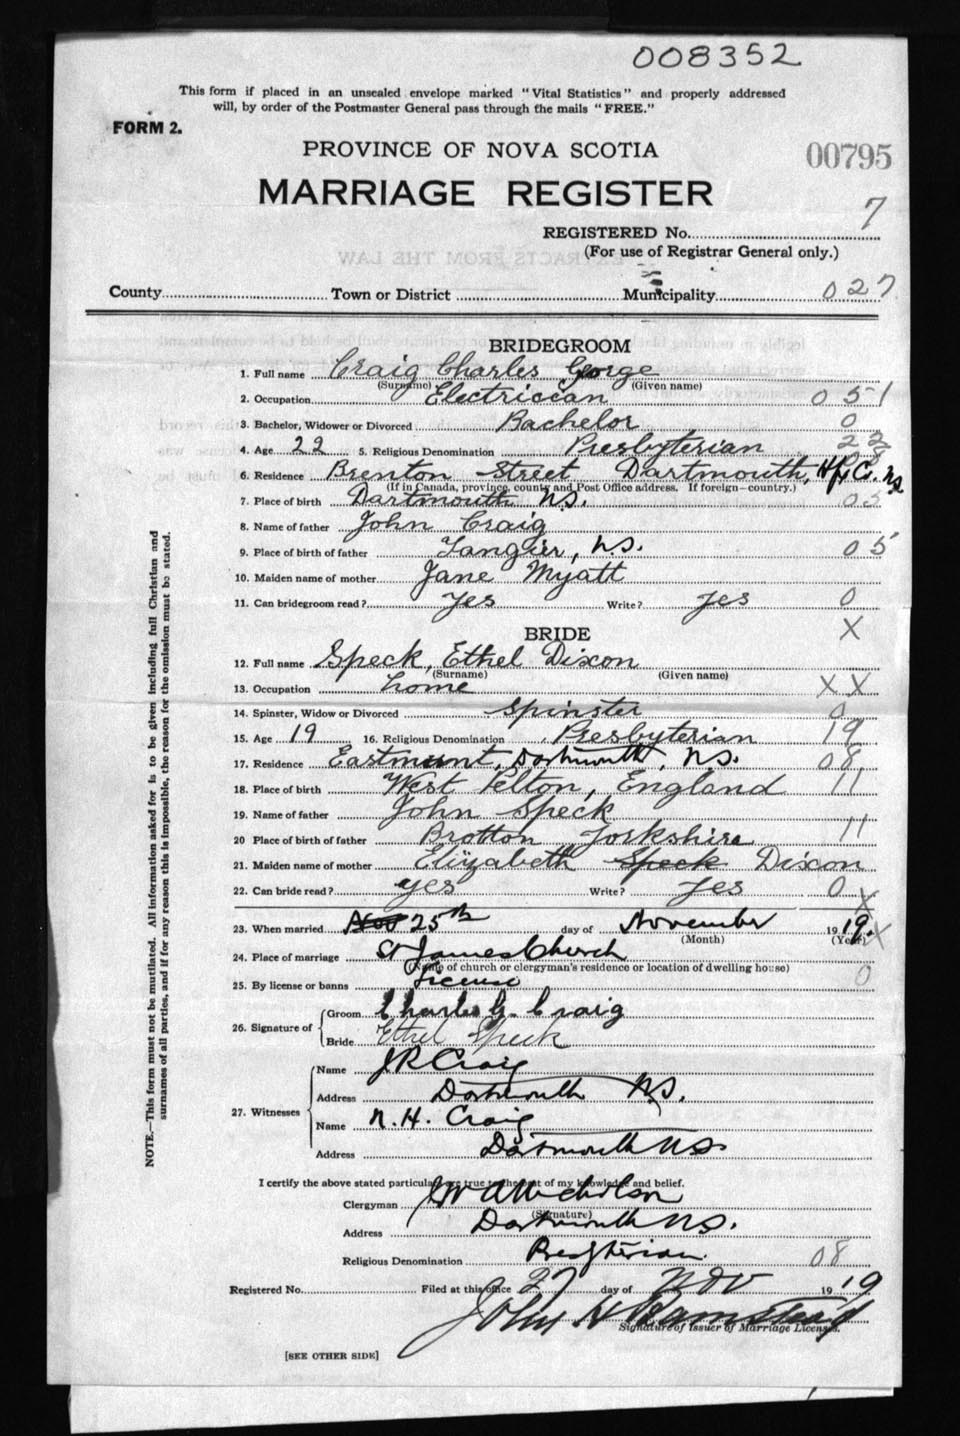 008352
This form if placed in an unsealed envelope marked "Vital Statistics" and properly addressed
will, by order of the Postmaster General pass through the mails "FREE."
FORM 2.
PROVINCE OF NOVA SCOTIA
00795
MARRIAGE REGISTER
7
REGISTERED No.
(For use of Registrar General only.)
County Town or District Municipality 027
BRIDEGROOM
1. Full name Craig Charles George
(Surname) (Given name)
2. Occupation Electrician 051
3. Bachelor, Widower or Divorced Bachelor 0
4. Age 22 5. Religious Denomination Presbyterian 22
6. Residence Brenton Street Dartmouth, Hfx Co. N.S. 08
(If in Canada, province, county and Post Office address. If foreign—country.)
7. Place of birth Dartmouth N.S. 05
8. Name of father John Craig
9. Place of birth of father Tangier, N.S. 05
10. Maiden name of mother Jane Myatt
11. Can bridegroom read? Yes Write? Yes 0
BRIDE X
12. Full name Speck, Ethel Dixon
(Surname) (Given name)
13. Occupation home XX
14. Spinster, Widow or Divorced Spinster 0
15. Age 19 16. Religious Denomination Presbyterian 19
17. Residence Eastmount, Dartmouth, N.S. 08
18. Place of birth West Pelton, England 11
19. Name of father John Speck
20 Place of birth of father Brotton Yorkshire 11
21. Maiden name of mother Elizabeth Speck Dixon
22. Can bride read? yes Write? Yes 0
X
23. When married Nov 25th day of November 19 19. X
(Month) (Year)
24. Place of marriage St James Church
(Name of church or clergyman's residence or location of dwelling house)
25. By license or banns License 0
26. Signature of Groom Charles G. Craig
Bride Ethel Speck
27. Witnesses Name J R Craig
Address Dartmouth N.S.
Name N. H. Craig
Address Dartmouth N.S.
I certify the above stated particulars are true to the best of my knowledge and belief.
Clergyman
(Signature)
Address Dartmouth N.S.
Religious Denomination Presbyterian. 08
Registered No. Filed at this office 27 day of Nov 19 19
John H
Signature of Issuer of Marriage Licenses.
[SEE OTHER SIDE]
NOTE.—This form must not be mutilated. All information asked for is to be given including full Christian and
surnames of all parties, and if for any reason this is impossible, the reason for the omission must be stated.